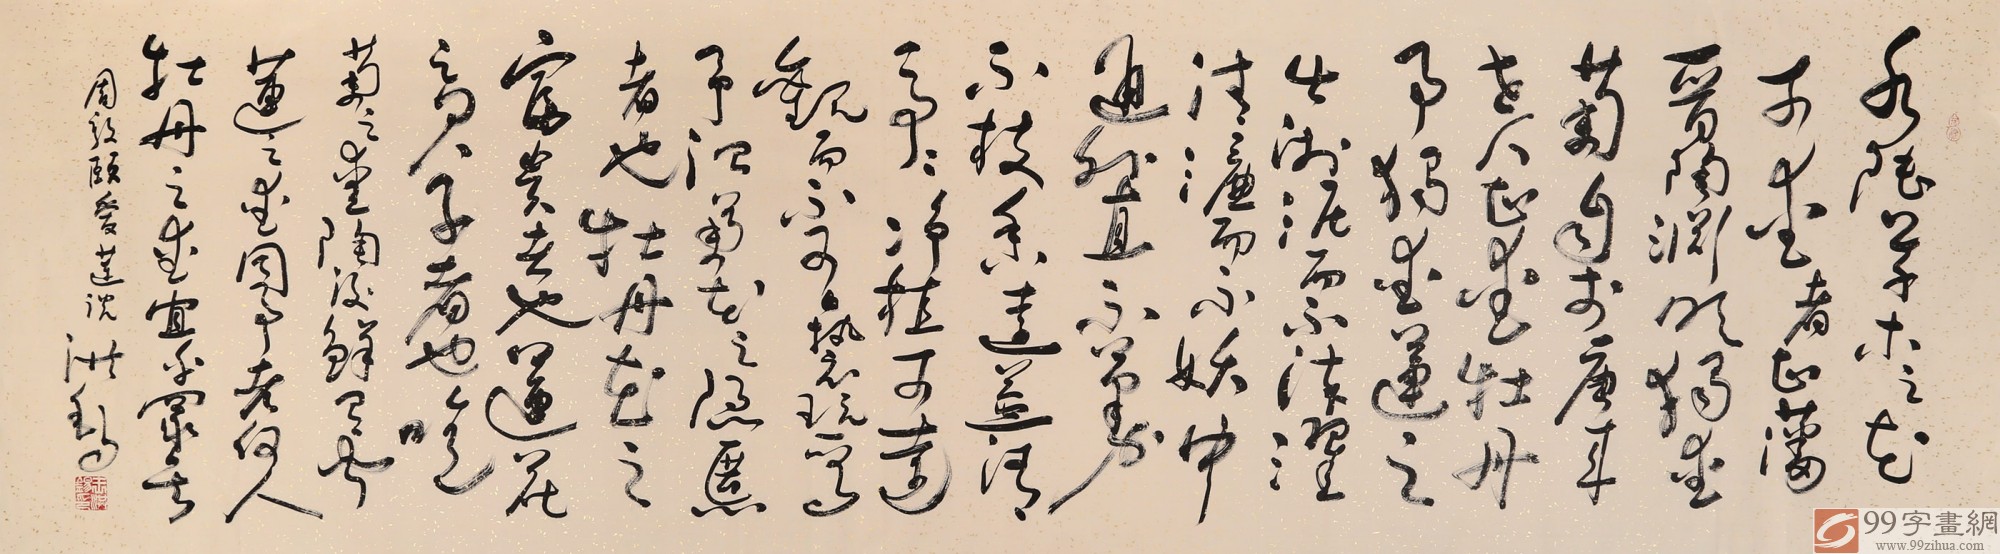 水陸草木之花
可愛者甚藩
晉陶淵明獨愛
菊自李唐来
世人甚愛牡丹
予獨愛蓮之
出淤泥而不染濯
清漣而不妖中
通外直不蔓
不枝香遠益清
亭亭净植可遠
觀而不可褻玩焉
予謂菊花之隱逸
者也牡丹花之
富貴者也蓮花
之君子者也噫
菊之愛陶後鮮有聞
蓮之愛同予者何人
牡丹之愛宜乎眾矣
周敦頤愛蓮說 洪錫
99字畫網
www.99zihua.com